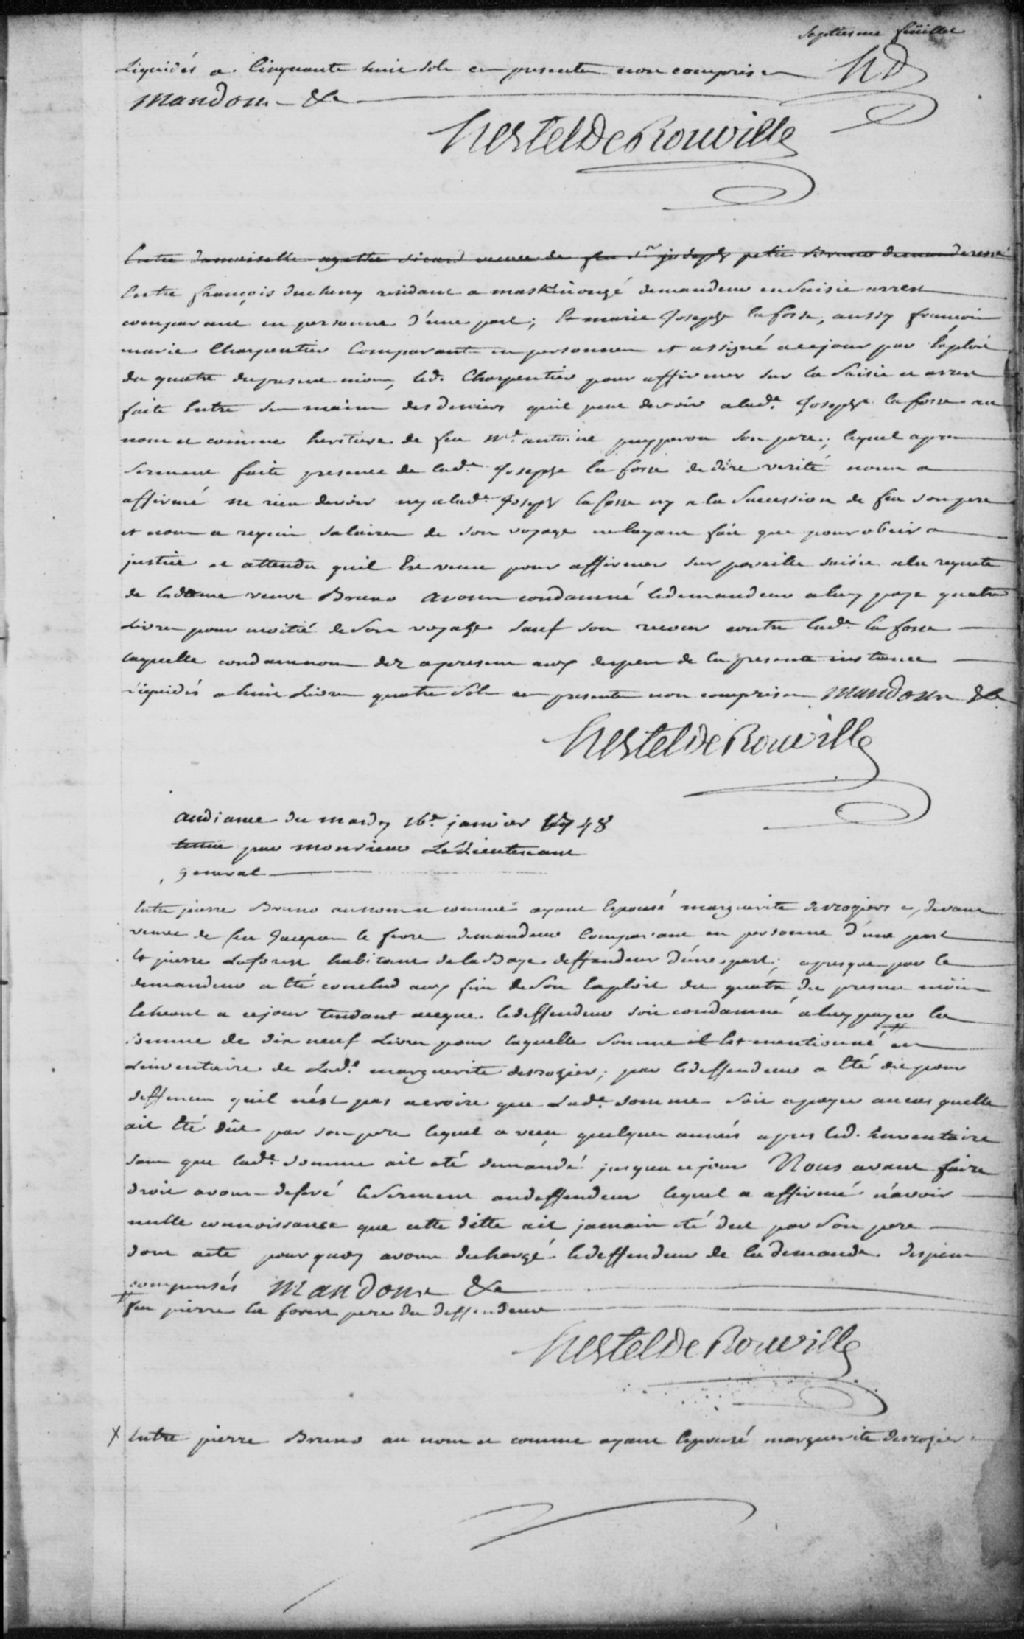 Septiesme feüillet
Liquidés a Cinquante huit sols ces presentes non comprises HD
Mandons &a
Hertel De Rouville
Entre damoiselle agathe sicard veuve de feu Sr joseph petit Bruno demanderesse
Entre françois duclieny residant a maskinongé demandeur en Saisie arrest
comparant en personne d'une part; Et marie Joseph la fosse, aussy françois
marie Charpentier Comparant en personnes et assigné a ce jour par Exploit
du quatre du present mois, led. Charpentier pour affirmer sur la Saisie et arrest
faite Entre Ses mains des deniers quil peut devoir a lade. Joseph la fosse au
nom et comme heritiere de feu me. antoine son pere; lequel apres
Serment fait presence de lade. Joseph la fosse de dire verité nous a
affirmé ne rien devoir ny a lade. Joseph la fosse ny a la Succession de feu son pere
et nous a requis salaires de son voyage ne layant fait que pour obeir a
justice et attendu quil Est venu pour affirmer sur pareille saisie a la requete
de la dame veuve Bruno avons condamné le demandeur a luy payer quatre
Livres pour moitié de Son voyage sauf son recour contre lade. la fosse
laquelle condamnons dez apresent aux depens de la presente instance
Liquidés a huit Livres quatre Sols ces presentes non comprises Mandons &a
Hertel De Rouville
audiance du mardy 16e. janvier 1748
tenue par monsieur Le Lieutenant
general
Entre pierre Bruno au nom et comme ayant Epousé marguerite desrosiers cy devant
veuve de feu le fevre demandeur Comparant en personne d'une part
Et pierre Laforest habitant de la Baye deffendeur d'une part; apresque par le
demandeur a Eté conclud aux fins de Son Exploit du quatre du present mois
Echeant a ce jour tendant a ceque le deffendeur soit condamné a luy payer la
Somme de dix neuf Livres pour laquelle Somme il Est mentionné # en
Linventaire de Lade. marguerite desrosiers; par le deffendeur a Eté dit pour
deffenses quil n'est pas a croire que Lade. Somme Soit a payer au cas quelle
ait Eté düe par son pere lequel a vecu quelques années apres led. Inventaire
sans que lade. Somme ait eté demandé jusqua ce jour Nous avant faire
droit avons deferé le Serment au deffendeur lequel a affirmé n'avoir
nulle connoissance que cette ditte ait jamais eté due par Son pere
dont acte pourquoy avons dechargé le deffendeur de la demande. depens
compensés Mandons &a
# feu pierre la forest pere du deffendeur
Hertel De Rouville
X Entre pierre Bruno au nom et comme ayant Epousé marguerite desrosiers